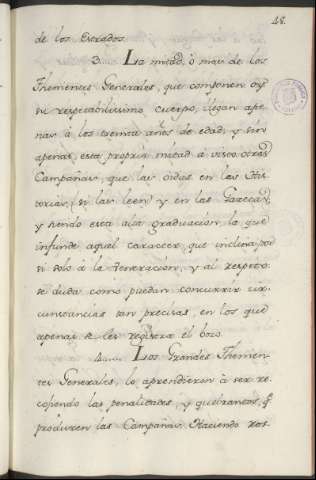 48.
de los Estados.
3. La mitad, ò mas de los
Thenientes Generales, que componen oy
su respetabilissimo cuerpo, llegan ape-
nas à los treinta años de edad; y sin
apenas, està propria mitad à visto otras
Campañas, que las oidas en las His-
torias, (si las leen) y en las Gazetas;
y siendo esta alta graduacion la que
infunde aquel caracter, que inclina por
si solo à la veneracion, y al respeto:
se duda como puedan concurrir cir-
cunstancias tan precisas, en los que
apenas se les registra el bozo.
4. Los Grandes Thenien-
tes Generales, lo aprendieron à ser re-
cogiendo las penalidades, y quebrantos, q.
producen las Campañas. Haciendo